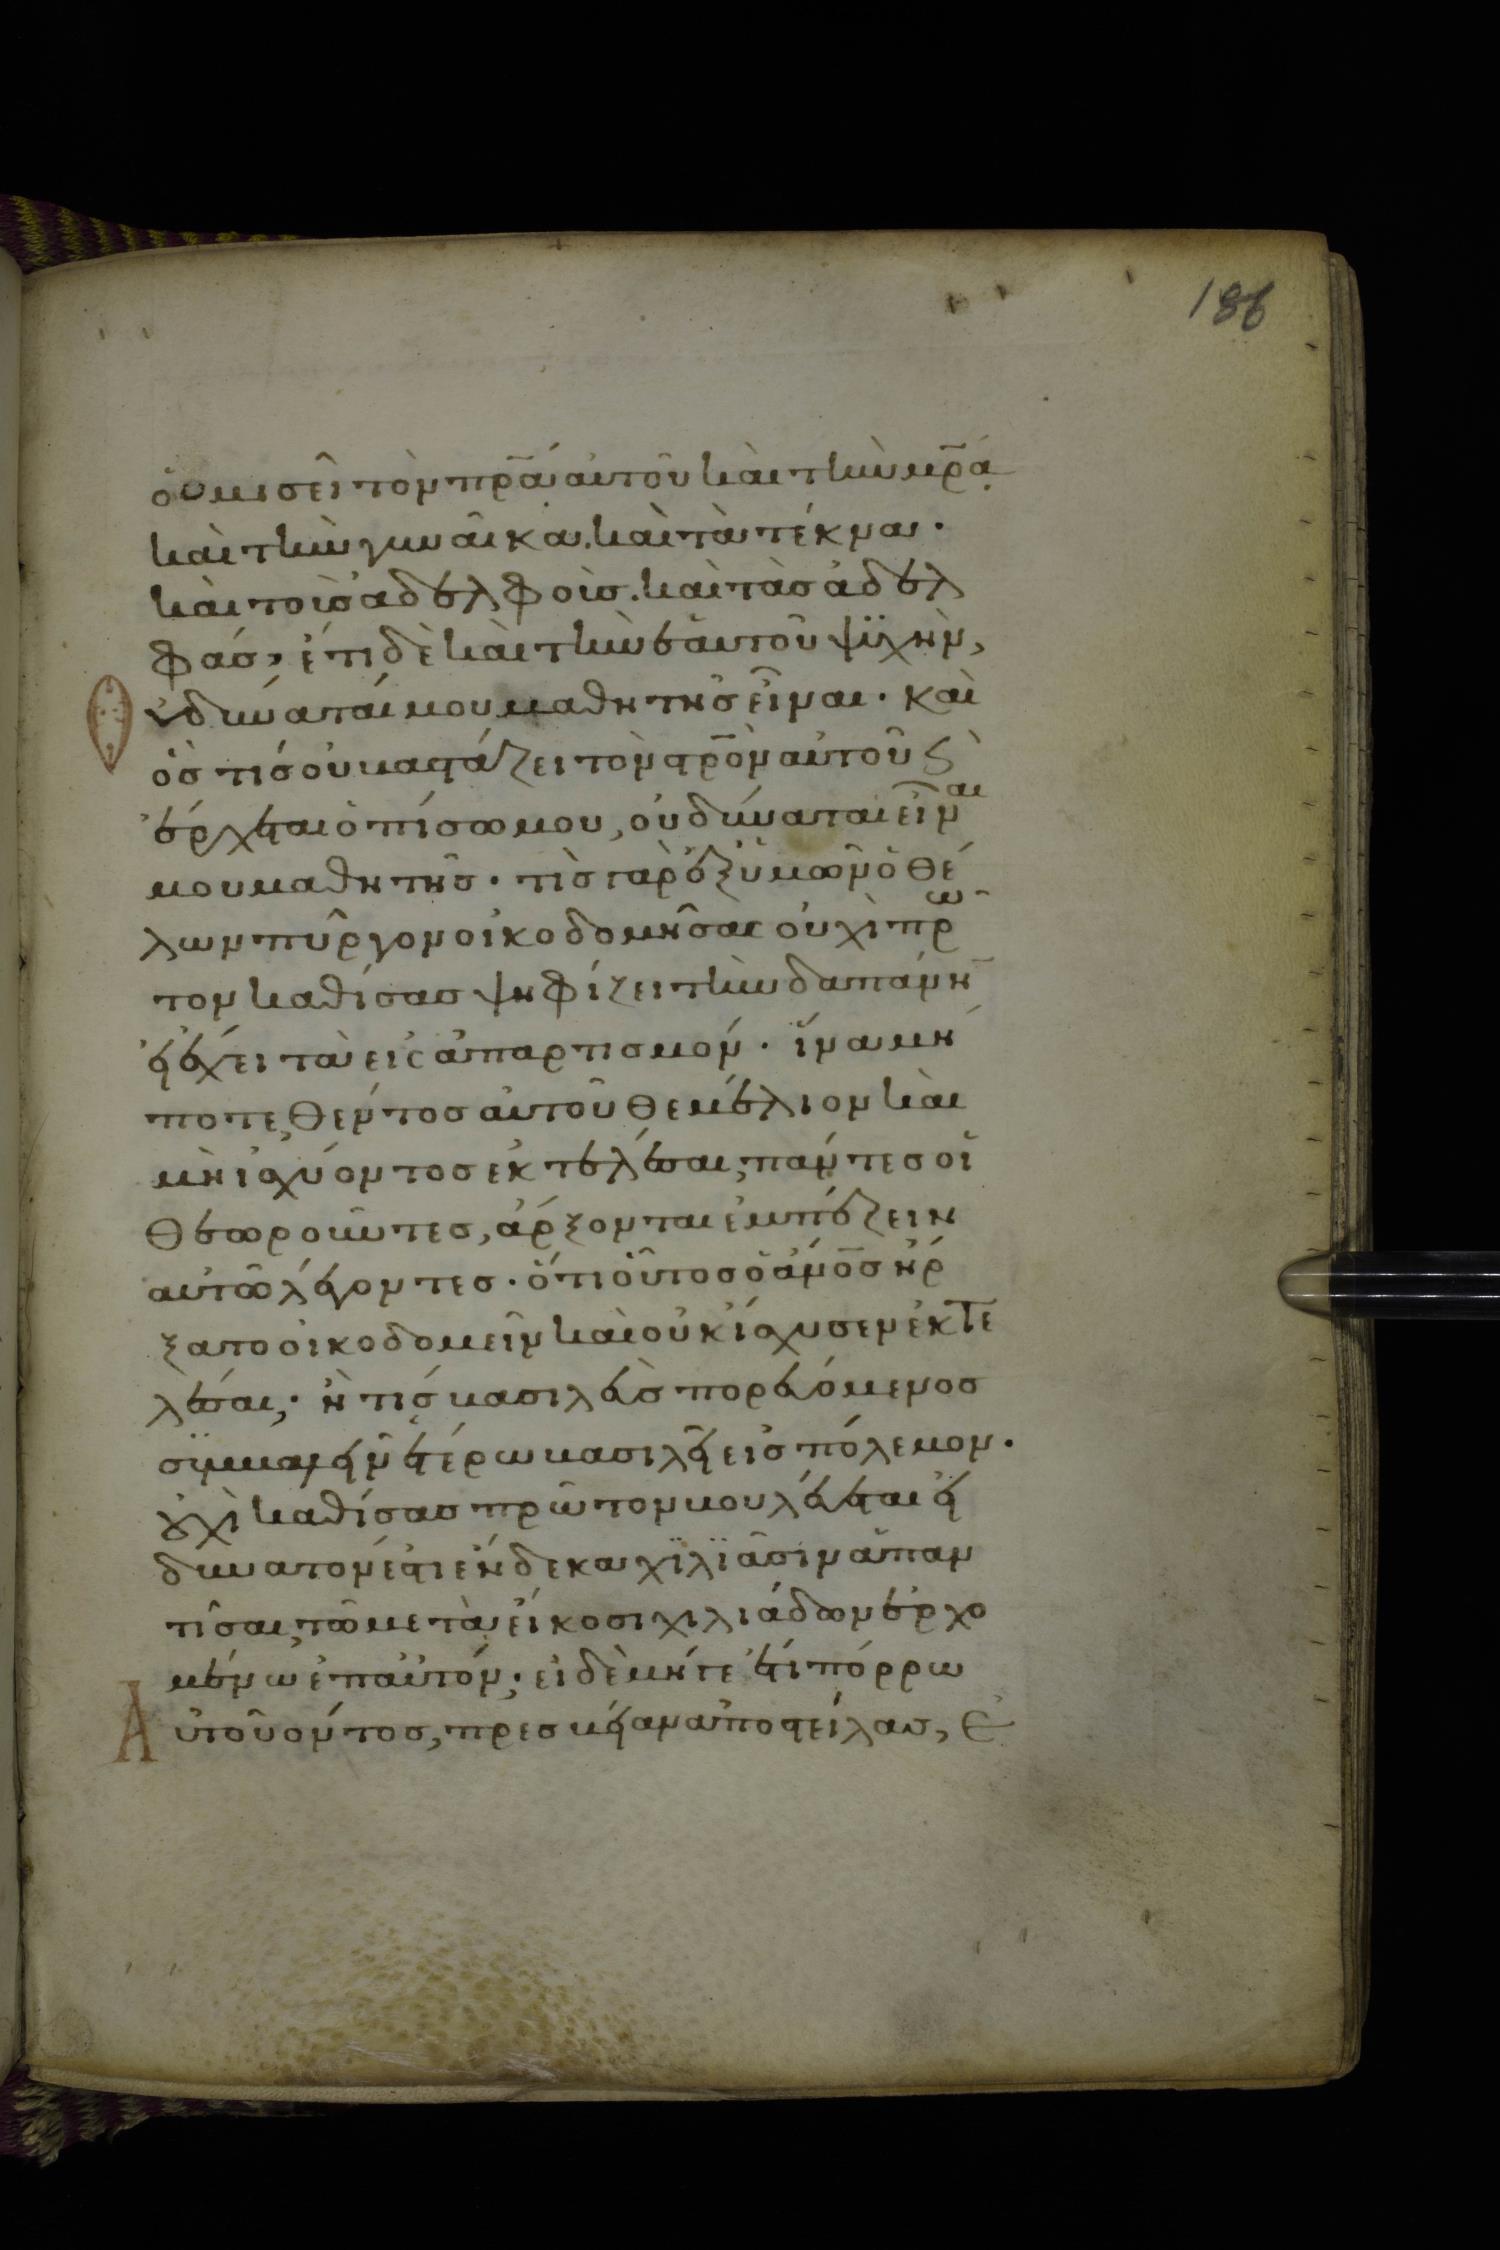 186
ὁυ μισεῖ τὸν πρ̅α ἀυτοῦ καὶ τὴν μρ̅α
καὶ τὴν γυναῖκα. καὶ τὰ τέκνα·
καὶ τοὶσ ἀδελφοὶσ. καὶ τὰσ ἀδελ
φάσ, ἔτι δὲ καὶ τὴν ἑαυτοῦ ψϋχὴν,
ȣ δύναταί μου μαθητὴσ εἶναι· καὶ
ὅσ τισ οὐ βαστάζει τὸν στρ̅ὸν αὐτοῦ ϗ
ἔρχεται ὀπίσω μου, οὐ δύναται εἶναι
μου μαθητῆσ· τὶσ γὰρ ἐξ ϋμῶν ὁ θέ
λων πῦργον οἰκοδομῆσαι οὐχὶ πρῶ
τον καθίσασ ψηφίζει τὴν δαπάνη̅
εἰ ἔχει τὰ εἰς ἀπαρτισμόν· ἵνα μή
ποτε θέντοσ ἀυτοῦ θεμέλιον καὶ
μὴ ἰσχύοντοσ ἐκτελέσαι, πάντεσ οἱ
θεωροῦντεσ, ἄρξονται ἐμπέζειν
αὐτῶ λέγοντεσ· ὅτι οὗτοσ ὁ ἄνο̅σ ἤρ
ξατο οἰκοδομεῖν καὶ οὐκ ἴσχυσεν ἐκτε
λέσαι· ἢ τίσ βασιλεὺσ πορευόμενοσ
σϋμβαλεῖν ἑτέρω βασιλεῖ εἰσ πόλεμον·
ȣχὶ καθίσασ πρῶτον βουλεύεται εἰ
δύνατόν ἐστι ἐν δεκα χϊλϊᾶσιν ἀπαν
τῖσαι, τῶ μετὰ εἴκοσι χιλιάδων ἐρχο
μένω ἐπ αὐτόν· εἰ δὲ μήγε ἔτι πόρρω
Αὐτοῦ όντοσ, πρεσβείαν ἀποστείλασ, ἐ